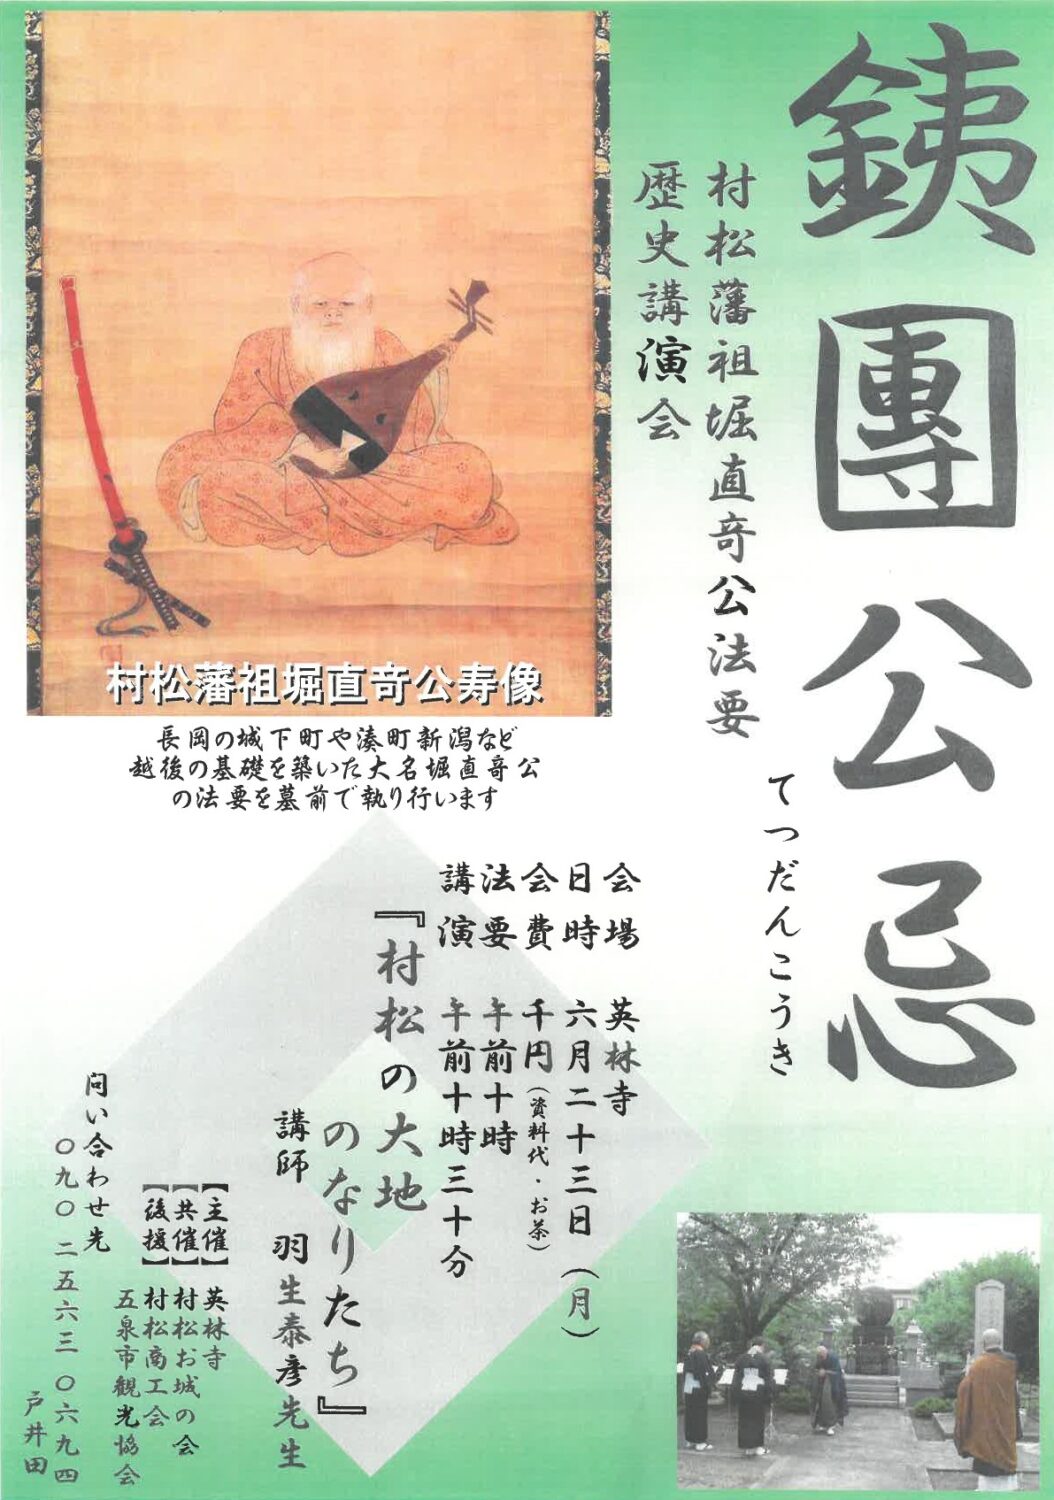 銕團公忌
てつだんこうき
村松藩祖堀直竒公法要
歴史講演会
村松藩祖堀直竒公寿像
長岡の城下町や湊町新潟など
越後の基礎を築いた大名堀直竒公
の法要を墓前で執り行います
会場 英林寺
日時 六月二十三日(月)
会費 千円(資料代・お茶)
法要 午前十時
講演 午前十時三十分
『村松の大地
のなりたち』
講師 羽生泰彦先生
【主催】英林寺
【共催】村松お城の会
【後援】村松商工会
五泉市観光協会
問い合わせ先
〇九〇 二五六三 〇六九四
戸井田